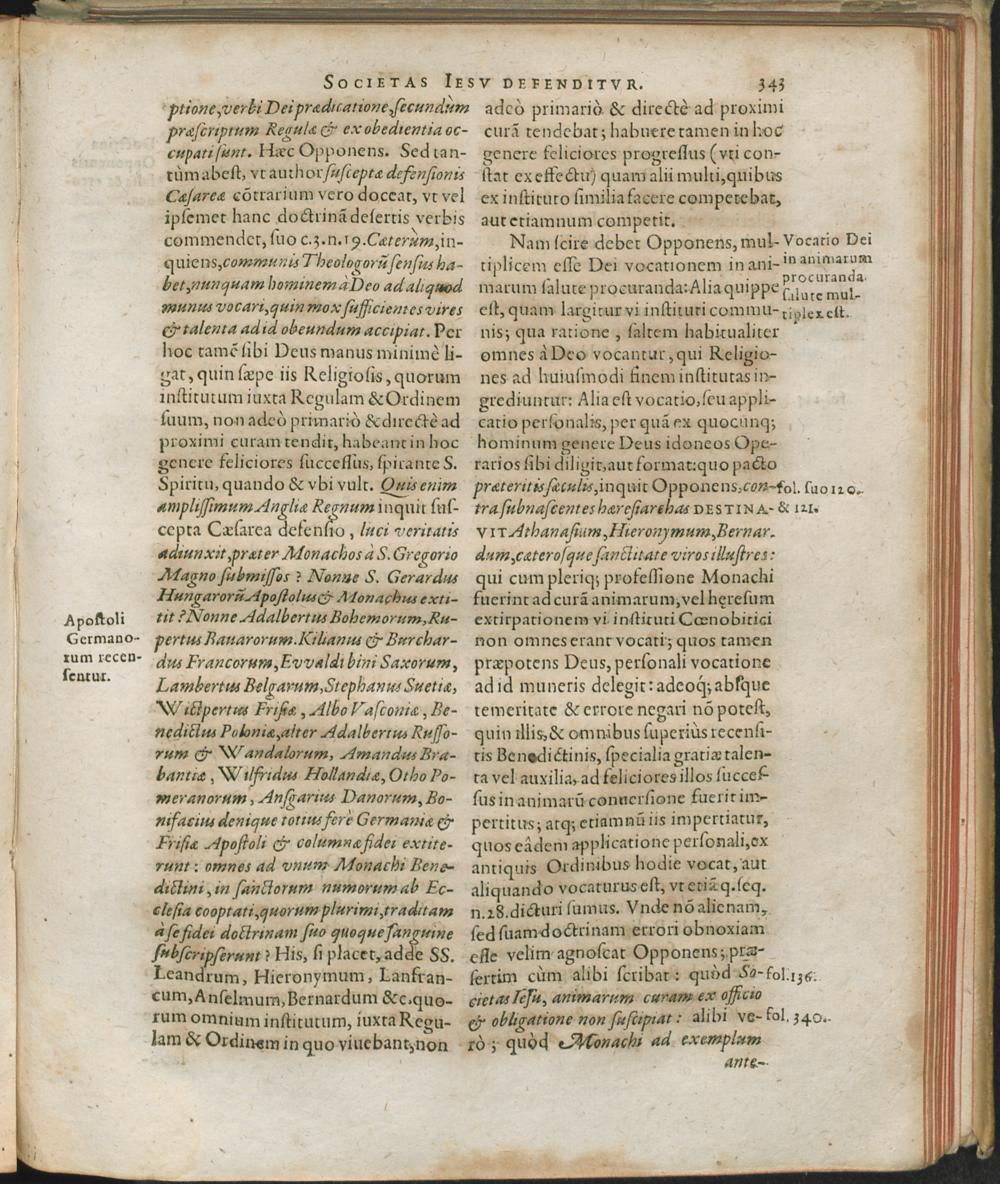 SOCIETAS IESV DEFENDITVR. 343
ptione, verbi Dei prædicatione, secundùm
præscriptum Regulæ & ex obedientia oc-
cupati sunt. Hæc Opponens. Sed tan-
tùm abest, vt author susceptæ defensionis
Cæsareæ cōtrarium vero doceat, vt vel
ipsemet hanc doctrinā desertis verbis
commendet, suo c.3.n.19. Cæterùm, in-
quiens, communis Theologorū sensus ha-
bet, nunquam hominem à Deo ad aliquod
munus vocari, quin mox sufficientes vires
& talenta ad id obeundum accipiat. Per
hoc tamē sibi Deus manus minimè li-
gat, quin sæpe iis Religiosis, quorum
institutum iuxta Regulam & Ordinem
suum, non adeò primariò & directè ad
proximi curam tendit, habeant in hoc
genere feliciores successus, spirante S.
Spiritu, quando & vbi vult. Quis enim
amplissimum Angliæ Regnum inquit sus-
cepta Cæsarea defensio, luci veritatis
adiunxit, præter Monachos à S. Gregorio
Magno submissos? Nonne S. Gerardus
Hungarorū Apostolus & Monachus exti-
tit? Nonne Adalbertus Bohemorum, Ru-
pertus Bauarorum. Kilianus & Burchar-
dus Francorum, Evvaldi bini Saxorum,
Lambertus Belgarum, Stephanus Suetiæ,
Wictpertus Frisiæ, Albo Vasconiæ, Be-
nedictus Poloniæ, alter Adalbertus Russo-
rum & Wandalorum, Amandus Bra-
bantiæ, Wilfridus Hollandiæ, Otho Po-
meranorum, Ansgarius Danorum, Bo-
nifacius denique totius ferè Germaniæ &
Frisiæ Apostoli & columnæ fidei extite-
runt: omnes ad vnum Monachi Bene-
dictini, in sanctorum numorum ab Ec-
clesia cooptati, quorum plurimi, traditam
à se fidei doctrinam suo quoque sanguine
subscripserunt? His, si placet, adde SS.
Leandrum, Hieronymum, Lanfran-
cum, Anselmum, Bernardum &c. quo-
rum omnium institutum, iuxta Regu-
lam & Ordinem in quo viuebant, non
Apostoli
Germano-
rum recen-
sentur.
adeò primariò & directè ad proximi
curā tendebat; habuere tamen in hoc
genere feliciores progressus (vti con-
stat ex effectu) quam alii multi, quibus
ex instituto similia facere competebat,
aut etiamnum competit.
Nam scire debet Opponens, mul-
tiplicem esse Dei vocationem in ani-
marum salute procuranda: Alia quippe
est, quam largitur vi instituti commu-
nis; qua ratione, saltem habitualiter
omnes à Deo vocantur, qui Religio-
nes ad huiusmodi finem institutas in-
grediuntur: Alia est vocatio, seu appli-
catio personalis, per quā ex quocunq;
hominum genere Deus idoneos Ope-
rarios sibi diligit, aut format: quo pacto
præteritis sæculis, inquit Opponens, con-
tra subnascentes hæresiarchas DESTINA-
VIT Athanasium, Hieronymum, Bernar-
dum, cæterosque sanctitate viros illustres:
qui cum pleriq; professione Monachi
fuerint ad curā animarum, vel hęresum
extirpationem vi instituti Cœnobitici
non omnes erant vocati; quos tamen
præpotens Deus, personali vocatione
ad id muneris delegit: adeoq́; absque
temeritate & errore negari nō potest,
quin illis, & omnibus superiùs recensi-
tis Benedictinis, specialia gratiæ talen-
ta vel auxilia, ad feliciores illos succes-
sus in animarū conuersione fuerit im-
pertitus; atq; etiamnū iis impertiatur,
quos eâdem applicatione personali, ex
antiquis Ordinibus hodie vocat, aut
aliquando vocaturus est, vt etiā q. seq.
n.28. dicturi sumus. Vnde nō alienam,
sed suam doctrinam errori obnoxiam
esse velim agnoscat Opponens; præ-
sertim cùm alibi scribat: quòd So-
cietas Iesu, animarum curam ex officio
& obligatione non suscipiat: alibi ve-
rò; quòd Monachi ad exemplum
ante-
Vocatio Dei
in animarum
procuranda
salute mul-
tiplex est.
fol. suo 120.
& 121.
fol. 136.
fol. 340.